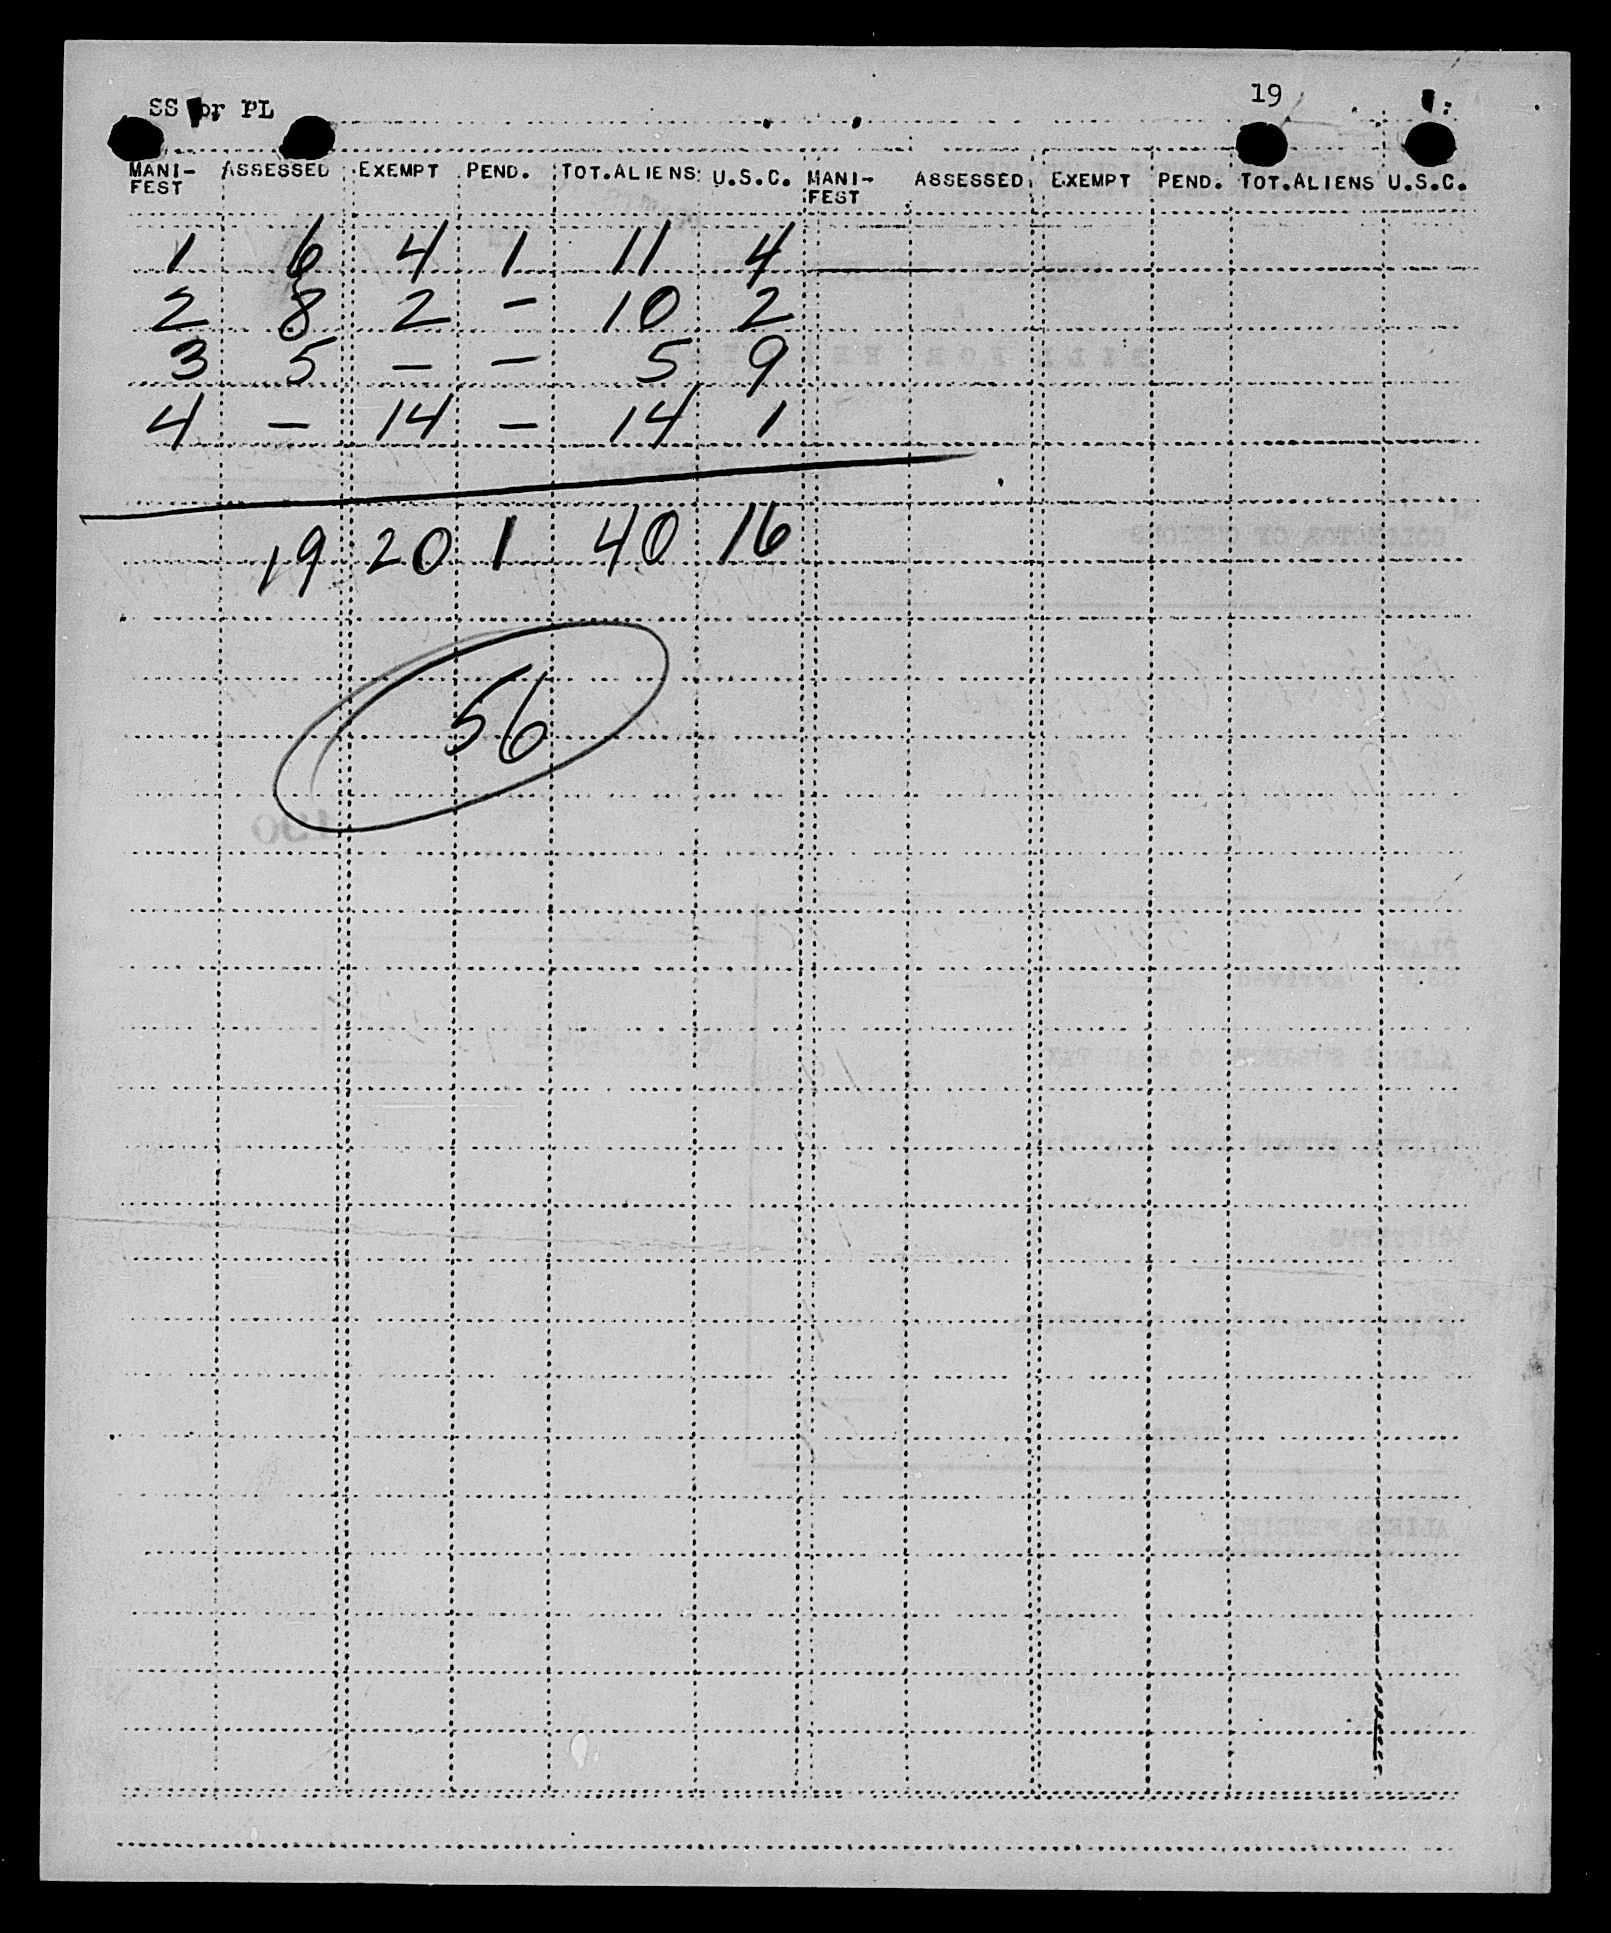 SS or PL 19
MANI-FEST ASSESSED EXEMPT PEND. TOT.ALIENS U.S.C. MANI-FEST ASSESSED EXEMPT PEND. TOT.ALIENS U.S.C.
1 6 4 1 11 4
2 8 2 - 10 2
3 5 - - 5 9
4 - 14 - 14 1
19 20 1 40 16
56